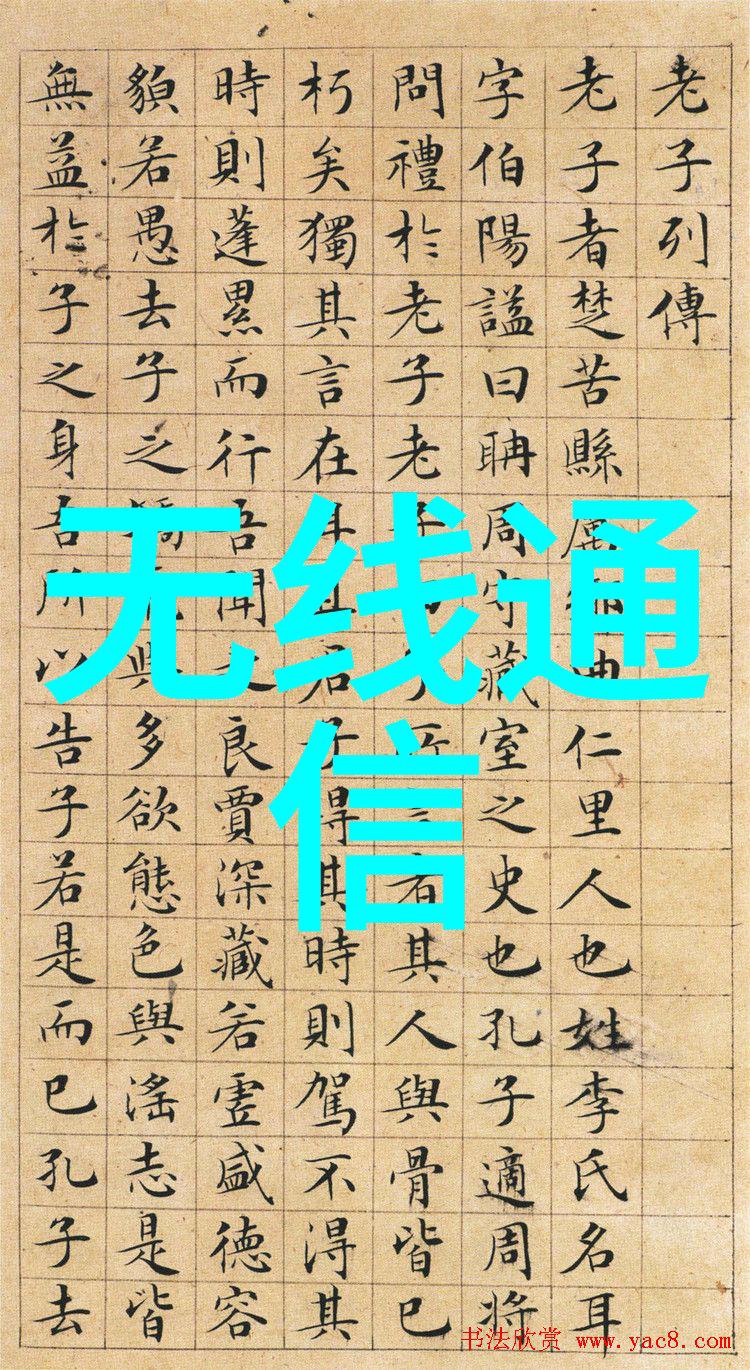 老子列傳
老子者楚苦縣厲鄉曲仁里人也姓李氏名耳
字伯陽謚曰聃周守藏室之史也孔子適周將
問禮於老子老子曰子所言者其人與骨皆已
朽矣獨其言在耳且君子得其時則駕不得其
時則蓬累而行吾聞之良賈深藏若虛盛德容
貌若愚去子之驕氣與多欲態色與淫志是皆
無益於子之身吾所以告子若是而已孔子去
无线通
信
书法欣赏 www.yac8.com